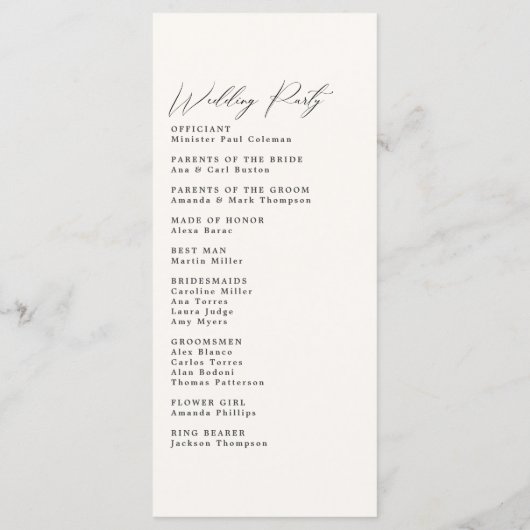 Wedding Party
OFFICIANT
Minister Paul Coleman
PARENTS OF THE BRIDE
Ana & Carl Buxton
PARENTS OF THE GROOM
Amanda & Mark Thompson
MADE OF HONOR
Alexa Barac
BEST MAN
Martin Miller
BRIDESMAIDS
Caroline Miller
Ana Torres
Laura Judge
Amy Myers
GROOMSMEN
Alex Blanco
Carlos Torres
Alan Bodoni
Thomas Patterson
FLOWER GIRL
Amanda Phillips
RING BEARER
Jackson Thompson